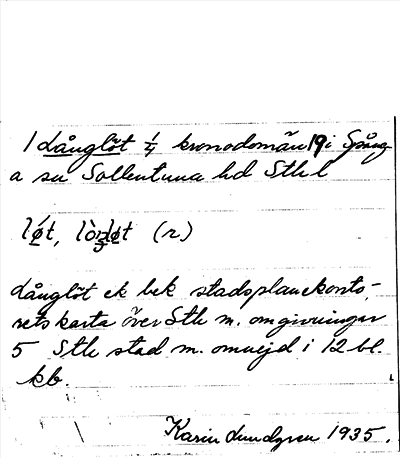 1 Långlöt 1/4 kronodomän 19 i Spång
a sn Sollentuna hd Sthl
lǿt, lòŋløt (r)
Långlöt ek bek stadsplanekonto-
rets karta över Sth m. omgivningar
5 Sth stad m. omnejd i 12 bl.
kb.
Karin Lundgren 1935.